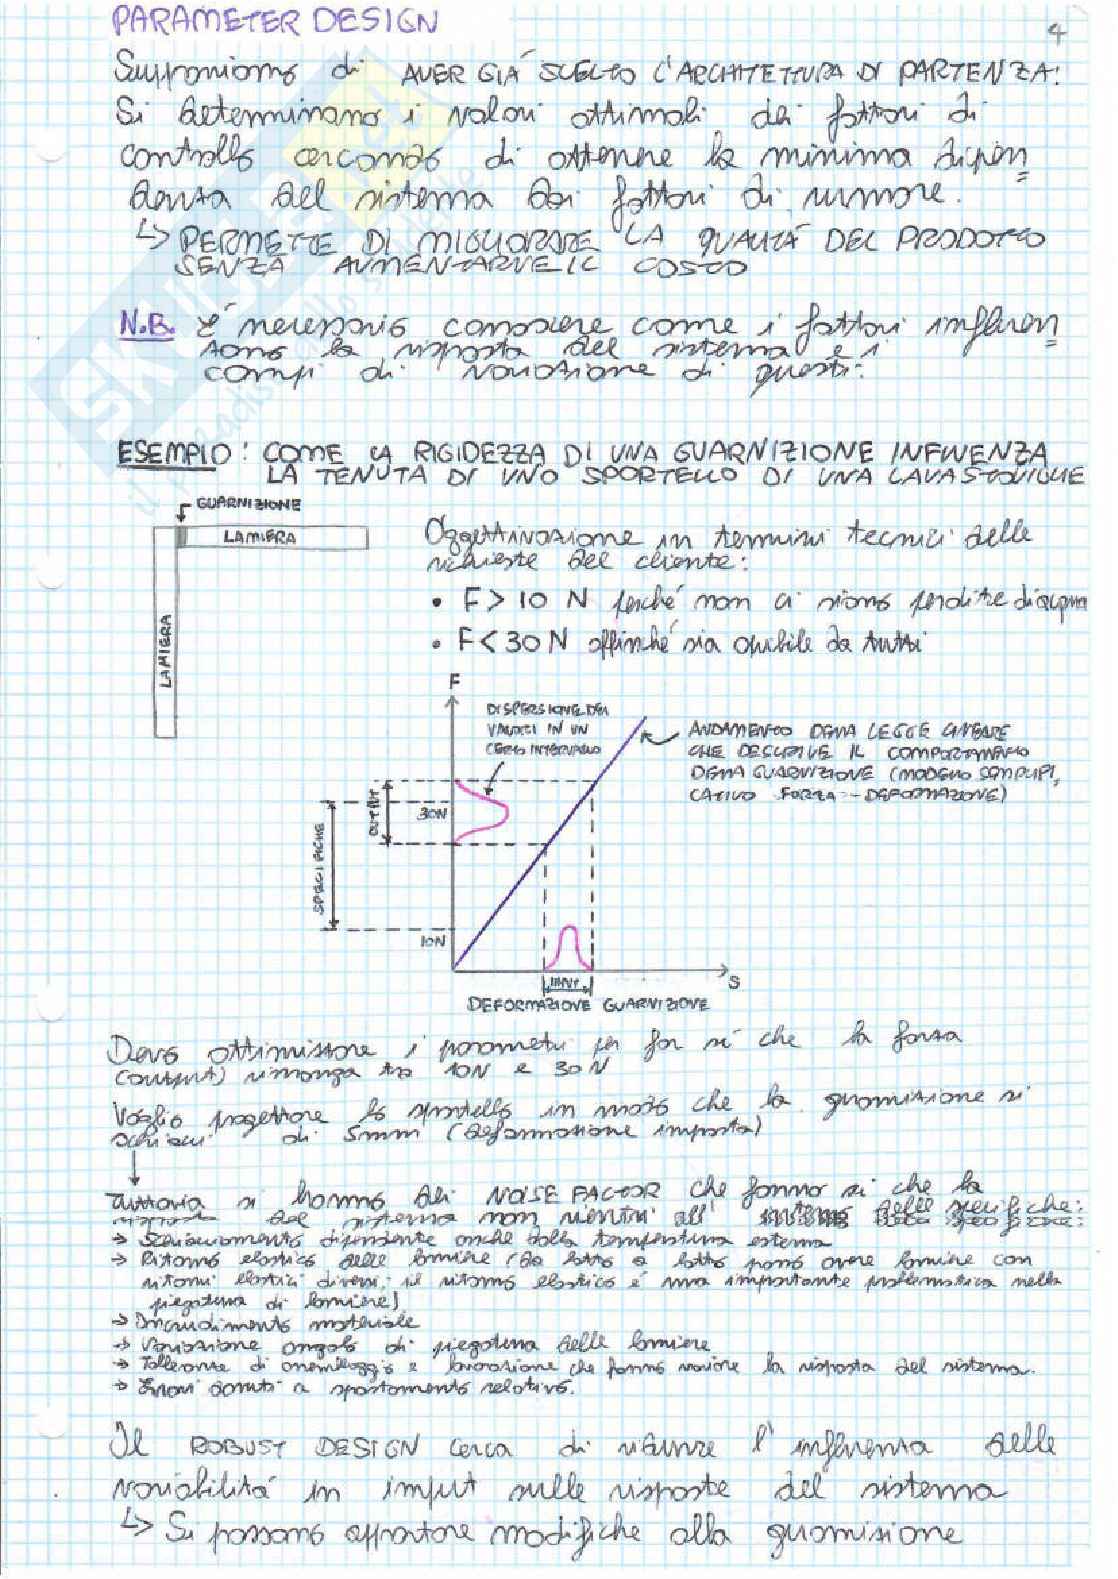 PARAMETER DESIGN
4
Supponiamo di AVER GIÁ SCELTO L'ARCHITETTURA DI PARTENZA:
Si determinano i valori ottimali dei fattori di
controllo cercando di ottenere la minima dipen
denza del sistema dai fattori di rumore.
↳ PERMETTE DI MIGLIORARE LA QUALITÁ DEL PRODOTTO
SENZA AUMENTARNE IL COSTO
N.B. É necessario conoscere come i fattori influen
zano la risposta del sistema e i
campi di variazione di questi:
ESEMPIO: COME LA RIGIDEZZA DI UNA GUARNIZIONE INFLUENZA
LA TENUTA DI UNO SPORTELLO DI UNA LAVASTOVIGLIE
GUARNIZIONE
LAMIERA
LAMIERA
Oggettivazione in termini tecnici delle
richieste del cliente:
• F > 10 N perché non ci siano perdite di acqua
• F < 30 N affinché sia apribile da tutti
F
DISPERSIONE DEI
VALORI IN UN
CERTO INTERVALLO
ANDAMENTO DELLA LEGGE LINEARE
CHE DESCRIVE IL COMPORTAMENTO
DELLA GUARNIZIONE (MODELLO SEMPLIFI,
CATIVO FORZA - DEFORMAZIONE)
OUTPUT
30N
SPECIFICHE
10N
INPUT
S
DEFORMAZIONE GUARNIZIONE
Devo ottimizzare i parametri per far sí che la forza
(output) rimanga tra 10N e 30N
Voglio progettare lo sportello in modo che la guarnizione si
schiacci di 5mm (deformazione imposta)
↓
tuttavia si hanno dei NOISE FACTOR che fanno si che la
risposta del sistema non rientri all' interno delle specifiche:
→ Schiacciamento dipendente anche dalla temperatura esterna
→ Ritorno elastico delle lamiere (da lotto a lotto posso avere lamiere con
ritorni elastici diversi; il ritorno elastico é una importante problematica nella
piegatura di lamiere)
→ Incrudimento materiale
→ Variazione angolo di piegatura delle lamiere
→ Tolleranze di assemblaggio e lavorazione che fanno variare la risposta del sistema.
→ Errori dovuti a spostamento relativo.
Il ROBUST DESIGN cerca di ridurre l'influenza delle
variabilitá in input sulle risposte del sistema
↳ Si possono apportare modifiche alla guarnizione